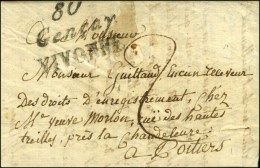 80
Cenon
VIVONNE
Monsieur
2
Monsieur Guittaud Receveur
Des droits d'enregistrement, Chez
Mde veuve Morlon, rue des hautes
treilles, près la Chandeliere
a Poitiers